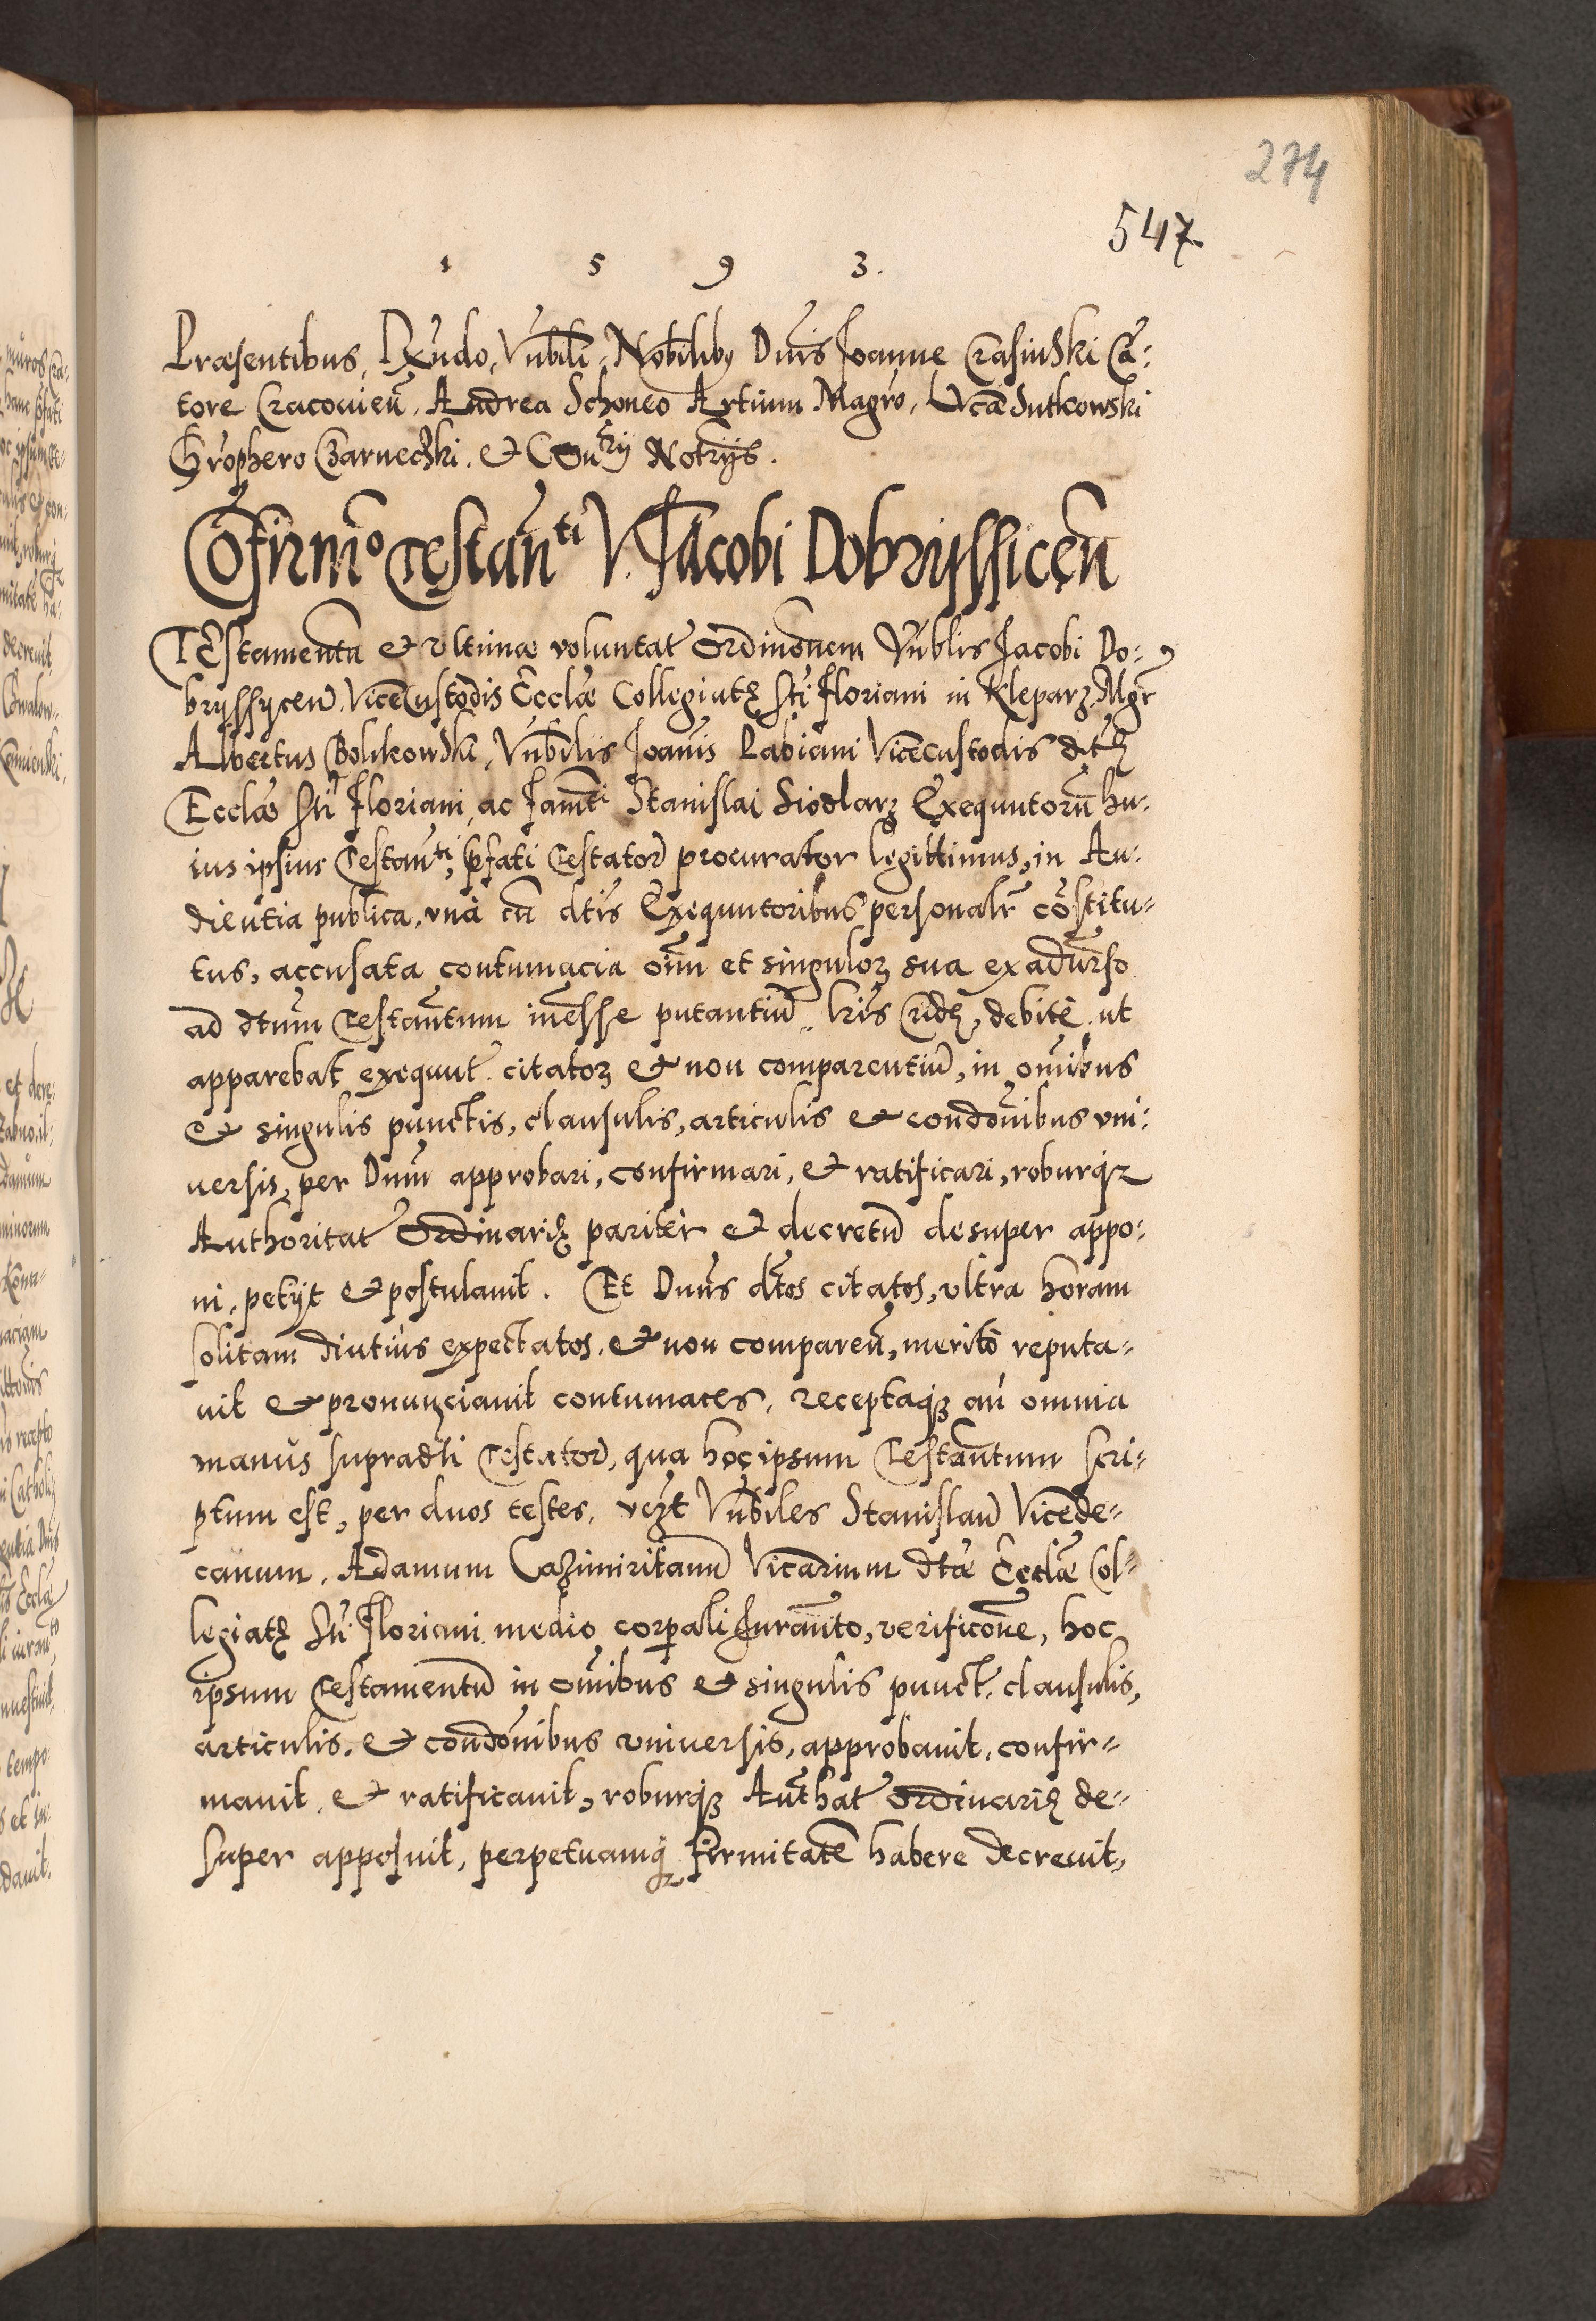 274
547.
1 5 9 3.
Præsentibus, Rx̃ndo, Vnbili, Nobilibq Dnis Joanne Crasinski Cã:
tore Cracouieñ, Andrea Schoneo Artium Magrõ, Lvca Sutkowski
Chrophero Czarneczki. et Notrijs.
Cõfirmõ Testanti V. Jacobi Dobryssiceñ
Testamentu et vltimæ voluntat ordinõnem Vñblis Jacobi Do:
bryssyceñ. ViceCustodis Ecclæ Collegiatę Sti Floriani in Kleparz, Mgr
Albertus Bolikowski, Vnbilis Joanis Rabiani Vicecustodis dtę
Ecclæ Sti Floriani, ac Famti Stanislai Siodlarz Exequutorũ hu:
ius ipsius Testanti, p̃fati Testator procurator legittimus, in Au:
dientia publica, vna cũ dtis Exequutoribus personalr cõstitu:
tus, accusata contumacia oĩm et singuloꝝ sua ex aduerso
ad dtum Testantum inesse putantiũ, debitè ut
apparebat exequut. citatoꝝ et non comparentiũ, in omibus
et singulis punctis, clausulis, articulis et condõnibus vni:
uersis, per Dnum approbari, confirmari, et ratificari, roburqz
Authoritat ordinarię pariter et decretũ desuper appo:
ni, petijt et postulauit. Et Dnus dtos citatos, vltra horam
solitam diutius expectatos, et non compareñ, merito reputa-
uit et pronunciauit contumaces, receptaqz añ omnia
manus supradti Testator, qua hoc ipsum Testantum scri-
ptum est, per duos testes, vczt Vnbiles Stanislaũ Vicede-
canum, Adamum Cazimiritanũ Vicarium dtæ Ecclæ Col-
legiatę Sti Floriani medio corpali Juranto, verificone, hoc
ipsum Testamentũ in omibus et singulis punct. clausulis,
articulis, et condõnibus vniuersis, approbauit, confir-
mauit, et ratificauit, roburqz Authat ordinarię de-
super apposuit, perpetuamqz firmitatẽ habere decreuit,